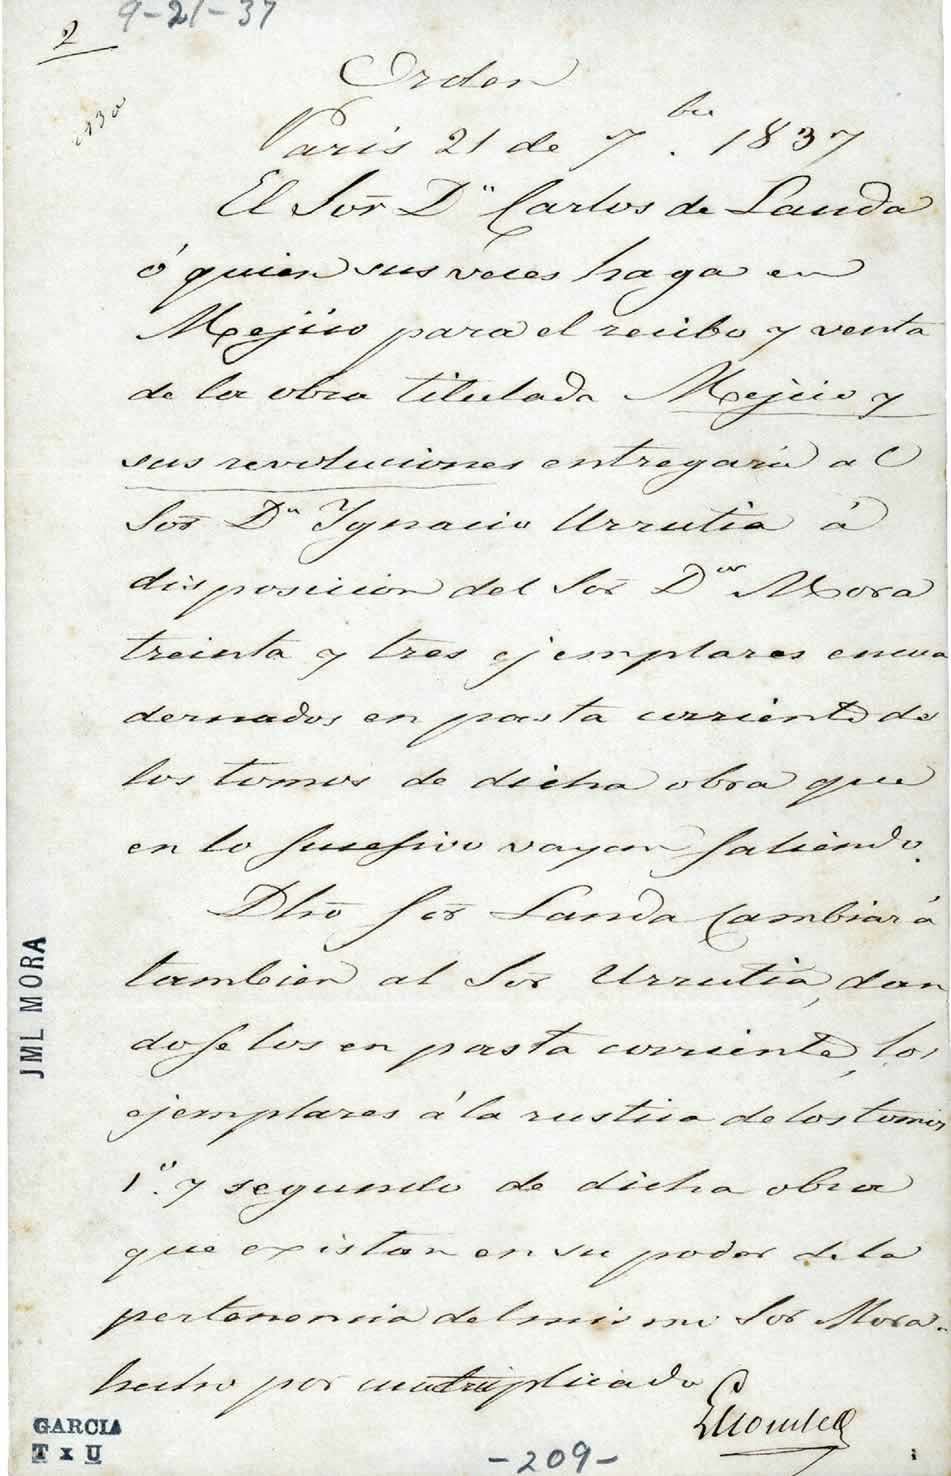 9-21-37
2
Orden
Paris 21 de 7.bre 1837
El Sor̃ Dn Carlos de Landa
ó quien sus veces haga en
Mejico para el recibo y venta
de la obra titulada Mejico y
sus revoluciones entregará al
Sor̃ Dn Ygnacio Urrutia á
disposicion del Sor̃ Dor Mora
treinta y tres ejemplares encua
dernados en pasta corriente de
los tomos de dicha obra que
en lo sucesivo vayan saliendo.
Dhõ Sor̃ Landa cambiará
tambien al Sor̃ Urrutia, dan
doselos en pasta corriente, los
ejemplares á la rustica de los tomos
1º. y segundo de dicha obra
que existan en su poder de la
pertenencia del mismo Sor Mora.
hecho por cuatriplicado
JML MORA
GARCIA
T x U
-209-